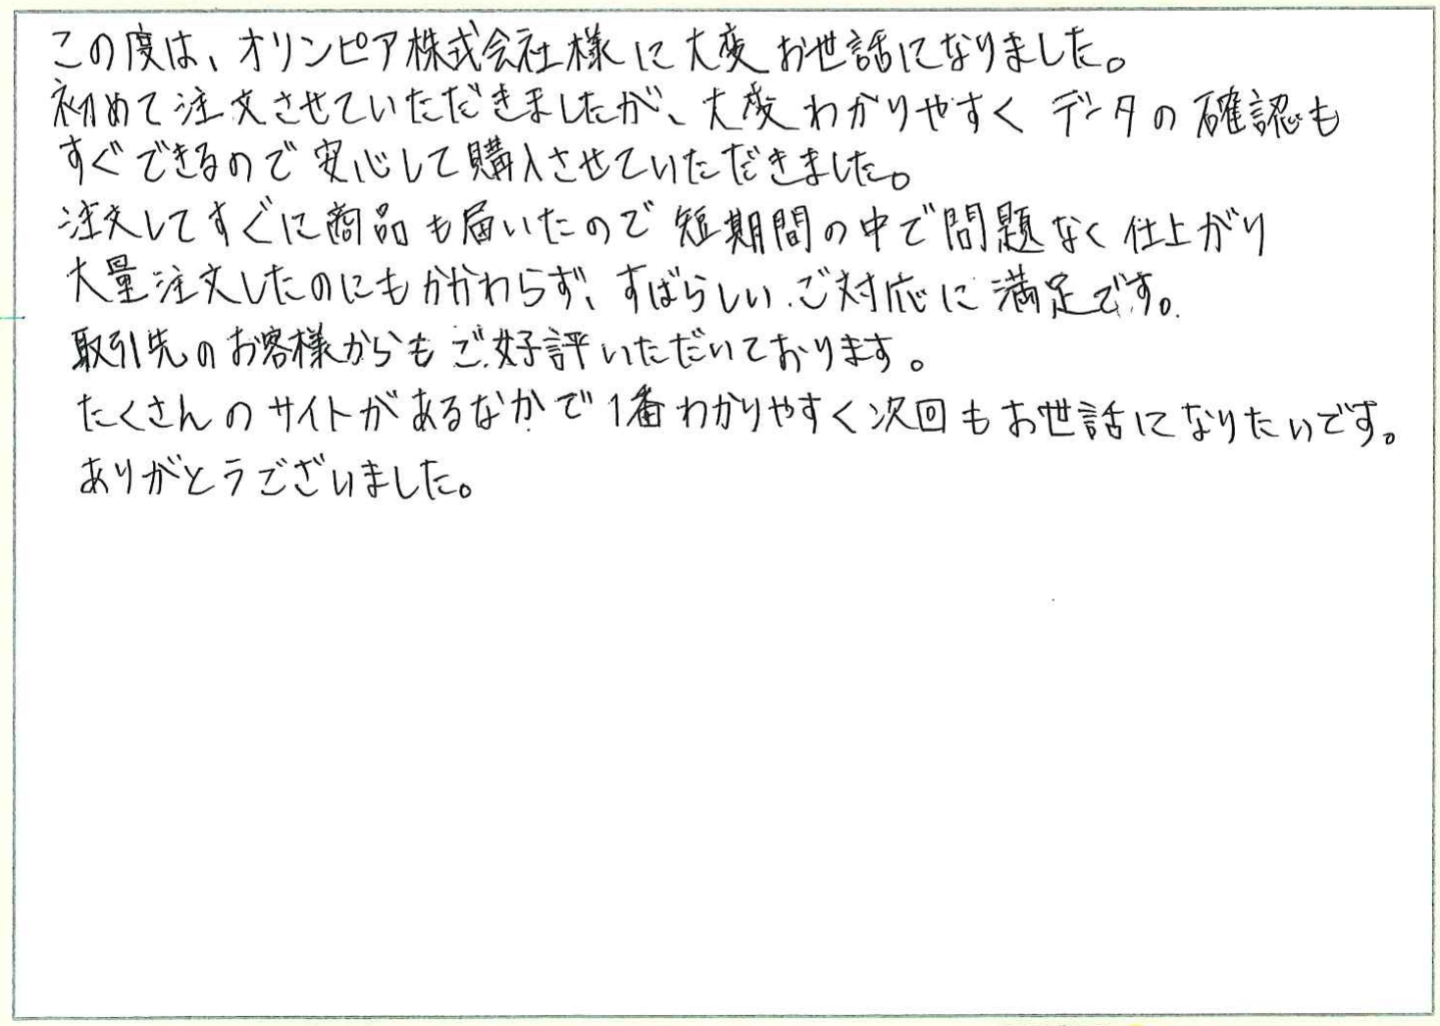 この度は、オリンピア株式会社様に大変お世話になりました。
初めて注文させていただきましたが、大変わかりやすくデータの確認も
すぐできるので安心して購入させていただきました。
注文してすぐに商品も届いたので短期間の中で問題なく仕上がり
大量注文したのにもかかわらず、すばらしいご対応に満足です。
取引先のお客様からもご好評いただいております。
たくさんのサイトがあるなかで1番わかりやすく次回もお世話になりたいです。
ありがとうございました。